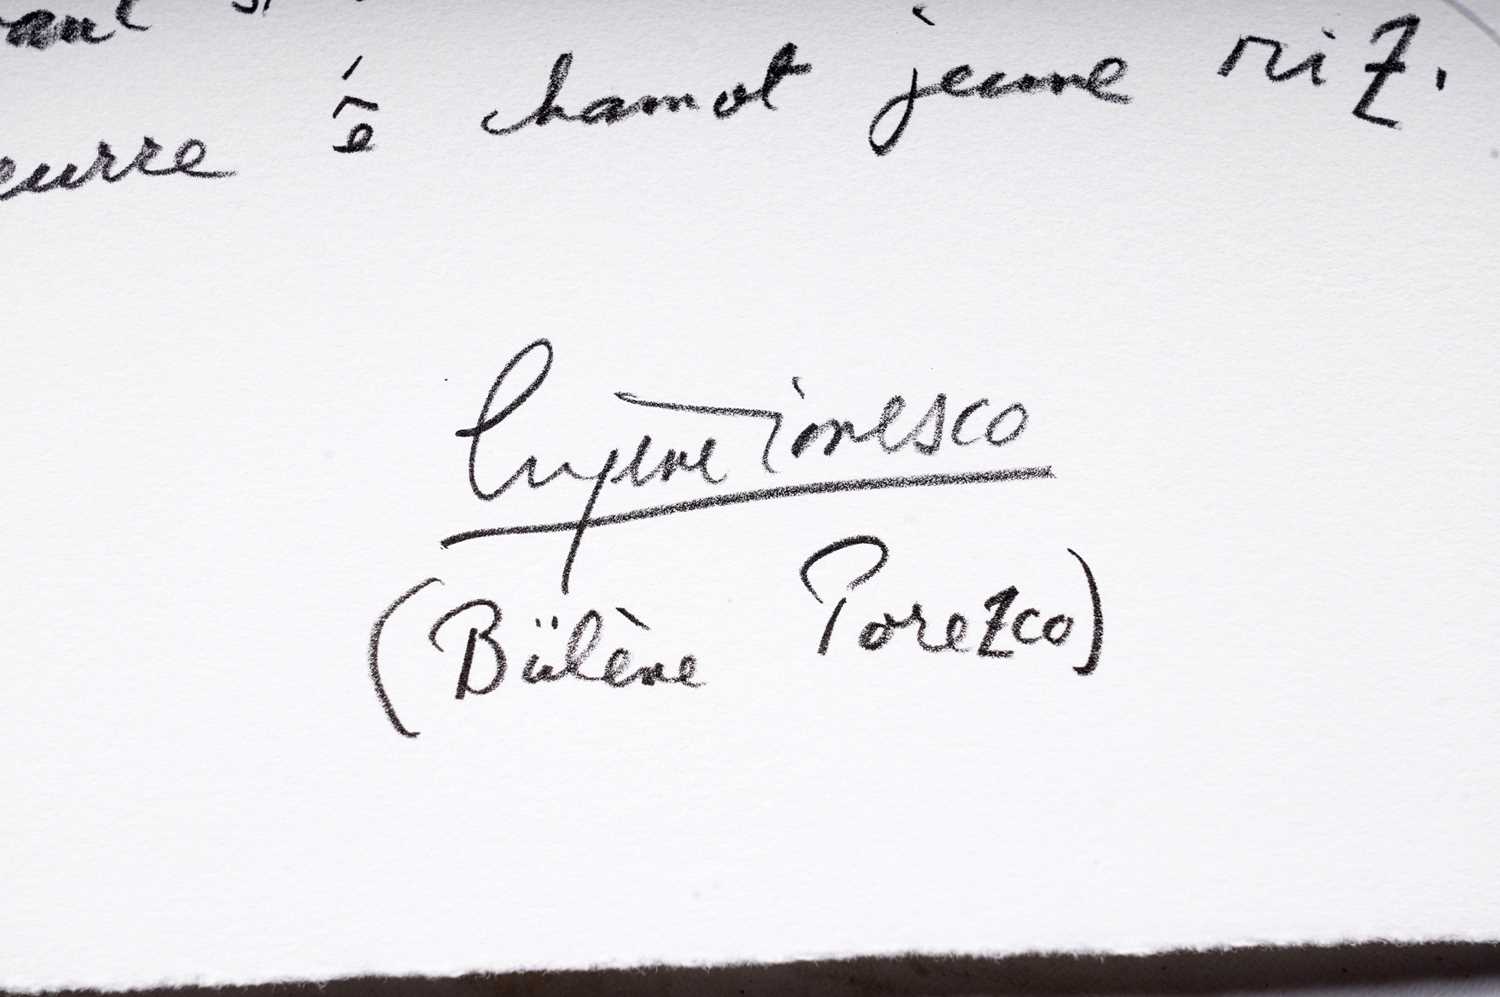 chamot jeune riz.
eurre
Eugène Ionesco
(Bülène Porezco)